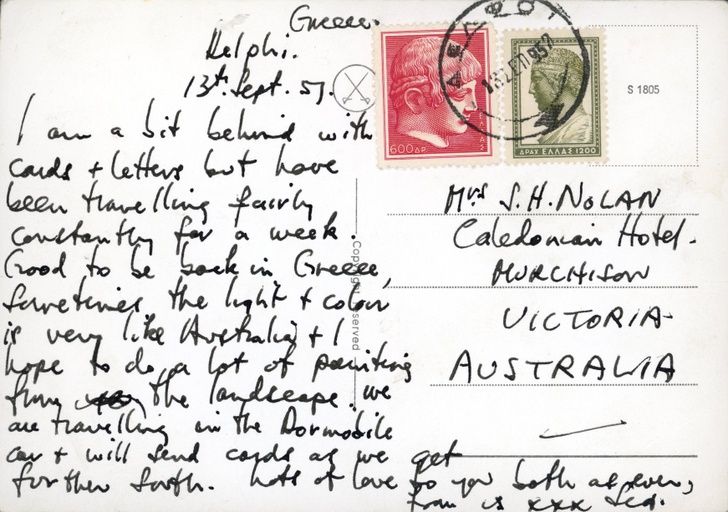 Greece.
Delphi.
13th Sept. 57.
I am a bit behind with
cards + letters but have
been travelling fairly
constantly for a week.
Good to be back in Greece,
sometimes the light + colour
is very like Australia + I
hope to do a lot of painting
from the landscape. We
are travelling in the Dormobile
car + will send cards as we get
further south. Lots of love to you both as ever,
from us xxx
600 ΔΡ
ΔΡΑΧ ΕΛΛΑΣ 1200
ΔΕΛΦΟΙ
S 1805
Copyright reserved
Mrs S.H. NOLAN
Caledonian Hotel.
MURCHISON
VICTORIA
AUSTRALIA